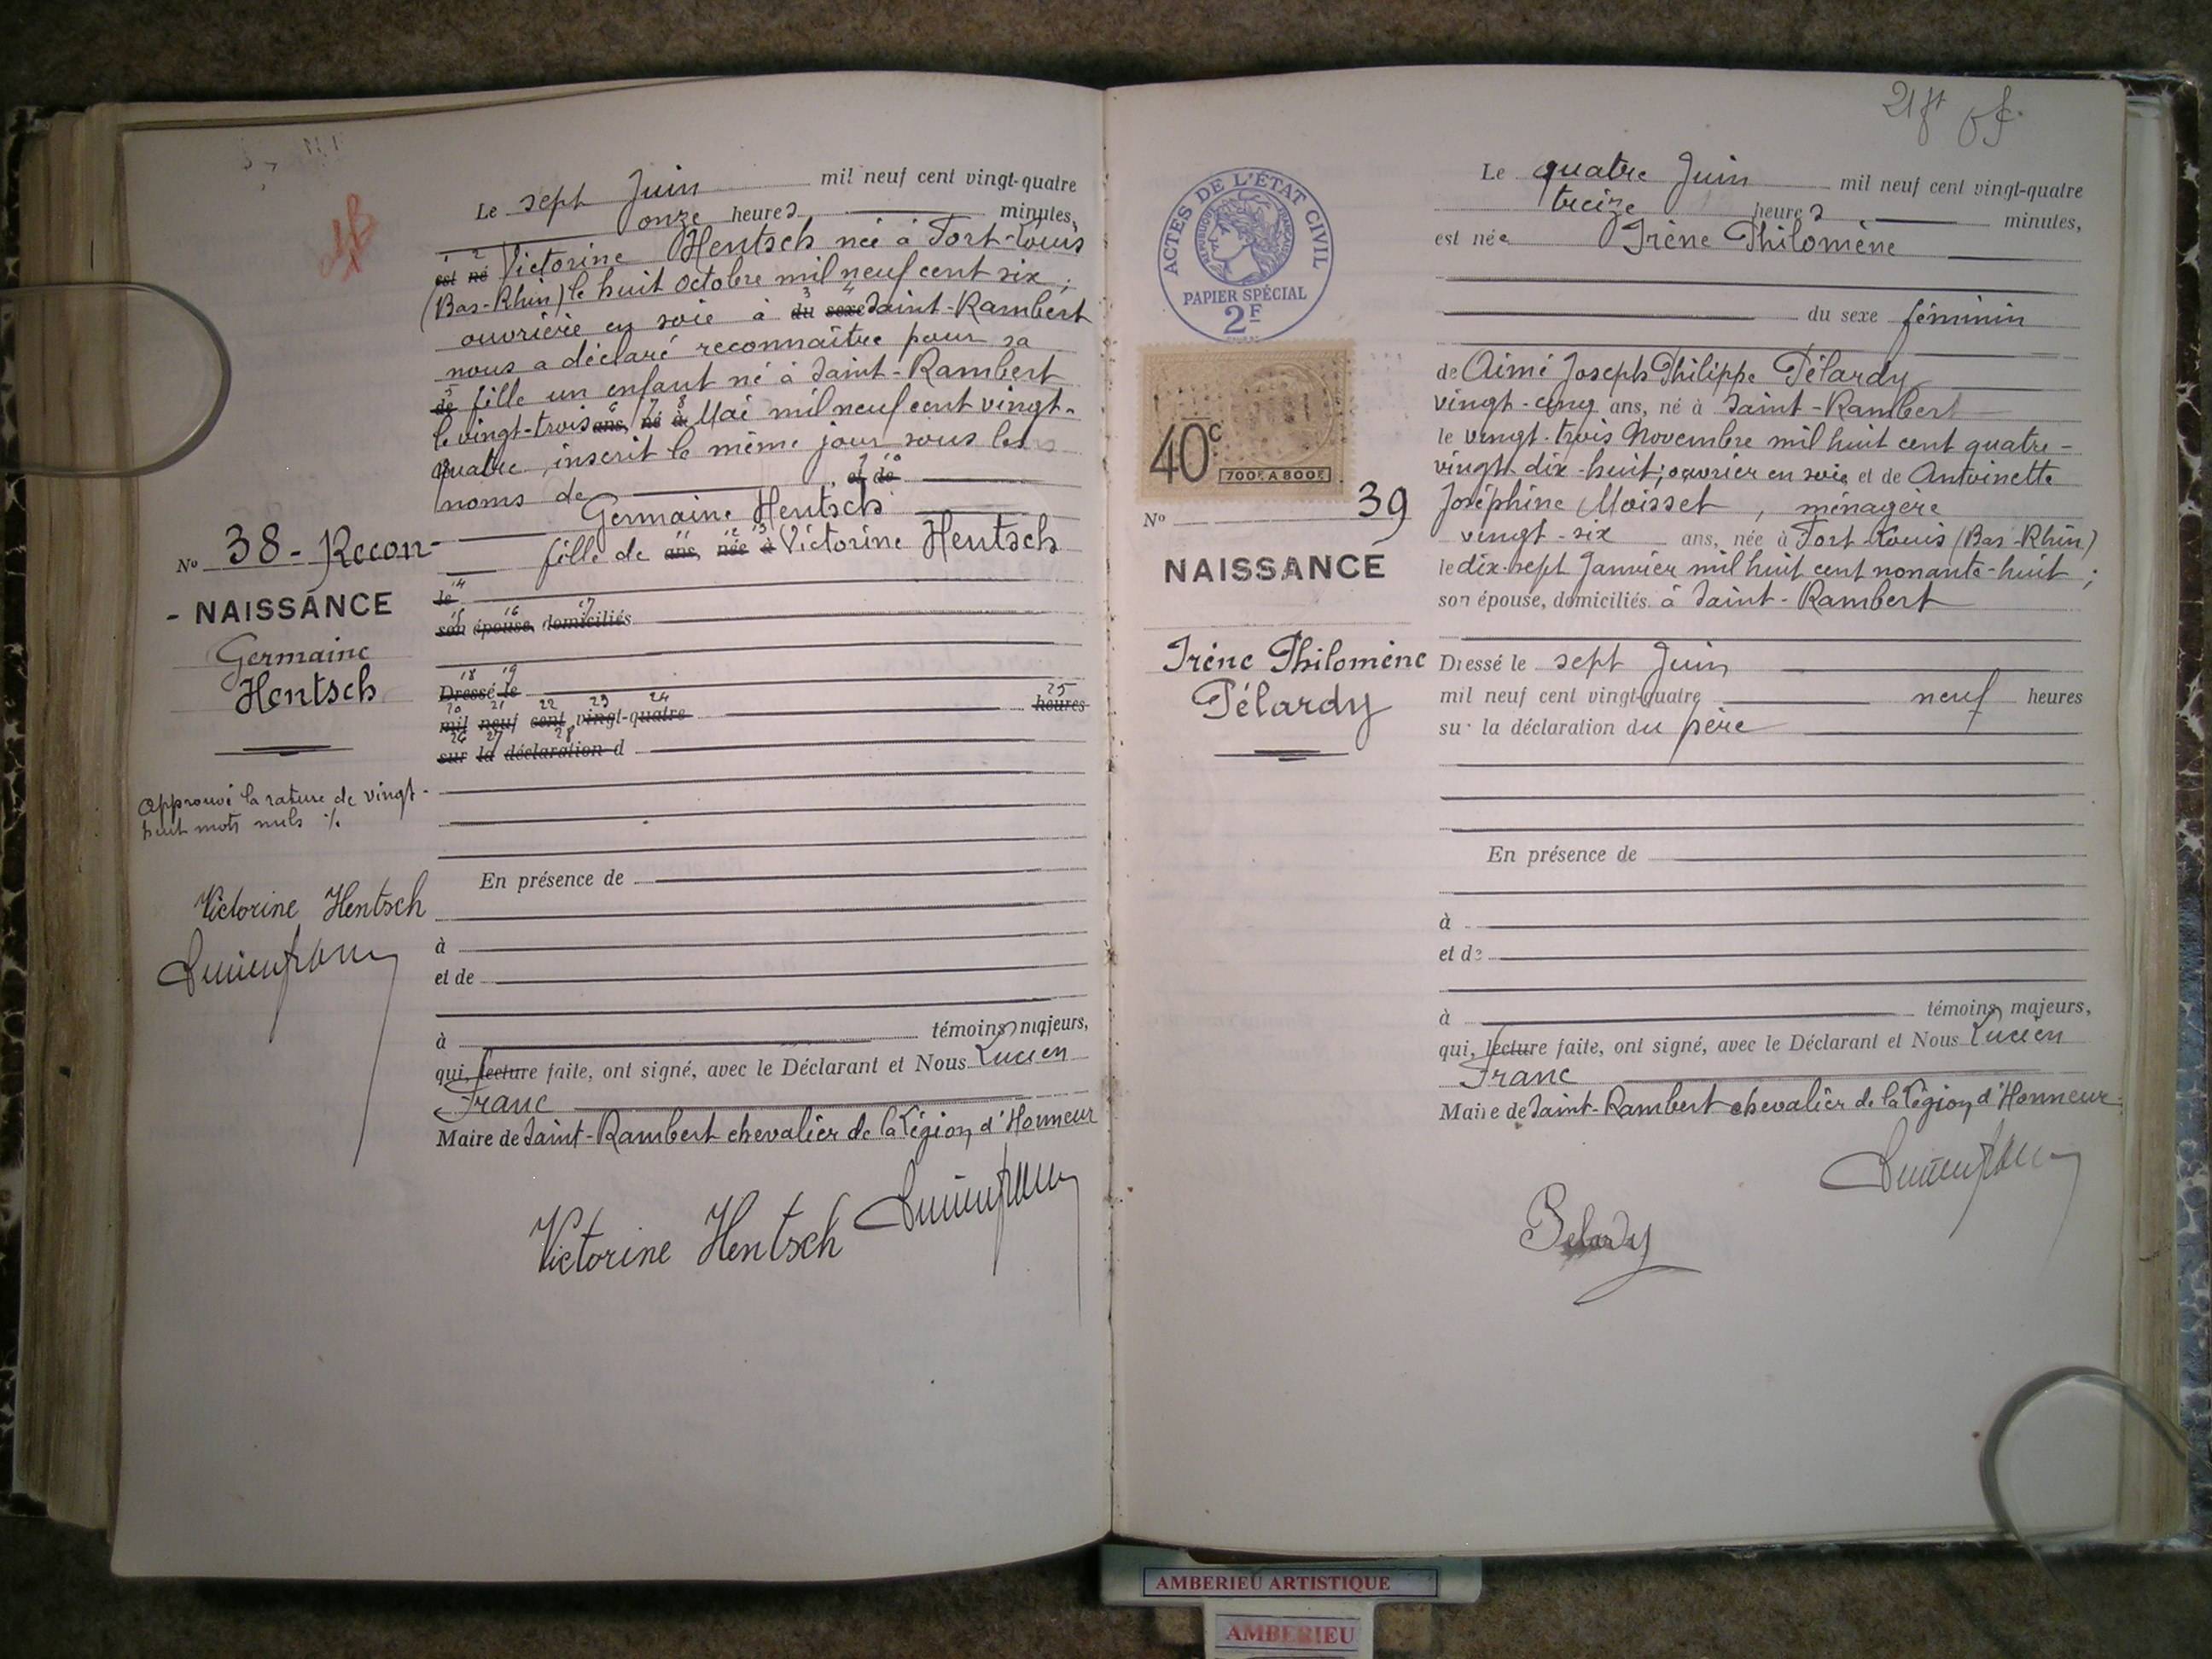 Le sept Juin mil neuf cent vingt-quatre
onze heures minutes,
est né Victorine Hentsch née à Fort-Louis
(Bas-Rhin) le huit octobre mil neuf cent six;
ouvrière en soie à du sexe Saint-Rambert
nous a déclaré reconnaître pour sa
de fille un enfant né à Saint-Rambert
le vingt-trois ans, né à Mai mil neuf cent vingt-
quatre, inscrit le même jour sous les
noms de , et de
Germaine Hentsch
fille de ans, née à Victorine Hentsch
le
son épouse, domiciliés
Dressé le
mil neuf cent vingt-quatre heures
sur la déclaration d
En présence de
à
et de
à témoins majeurs,
qui, lecture faite, ont signé, avec le Déclarant et Nous Lucien
Franc
Maire de Saint-Rambert chevalier de la Légion d'Honneur
Victorine Hentsch
No 38 - Recon-
- NAISSANCE
Germaine
Hentsch
Approuvé la rature de vingt-
huit mots nuls
Victorine Hentsch
ACTES DE L'ÉTAT CIVIL
PAPIER SPÉCIAL
2F
40c
700F. A 800F.
No 39
NAISSANCE
Irène Philomène
Pélardy
Le quatre Juin mil neuf cent vingt-quatre
treize heures minutes,
est née Irène Philomène
du sexe féminin
de Aimé Joseph Philippe Pélardy
vingt-cinq ans, né à Saint-Rambert
le vingt-trois Novembre mil huit cent quatre-
vingt dix-huit; ouvrier en soie et de Antoinette
Joséphine Moisset, ménagère
vingt-six ans, née à Fort-Louis (Bas-Rhin)
le dix-sept Janvier mil huit cent nonante-huit;
son épouse, domiciliés à Saint-Rambert
Dressé le sept Juin
mil neuf cent vingt-quatre neuf heures
sur la déclaration du père
En présence de
à
et de
à témoins majeurs,
qui, lecture faite, ont signé, avec le Déclarant et Nous Lucien
Franc
Maire de Saint-Rambert chevalier de la Légion d'Honneur.
Pelardy
AMBERIEU ARTISTIQUE
AMBERIEU